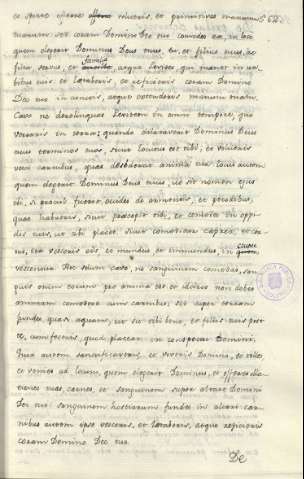 vescens, et primitias manuum
coram Domino Deo tuo comedes ea, in loco,
quem elegerit Dominus Deus tuus, tu, et filius tuus, et
filia, servus, et famula, atque Levites, qui manet in urbibus
tuis: et laetaberis, et reficieris coram Domino
Deo tuo in cunctis, ad quae extenderis manum tuam.
Cave ne derelinquas Levitam in omni tempore, quo
versaris in terra; quando dilataverit Dominus Deus
tuus terminos tuos, sicut locutus est tibi, et volueris
vesci carnibus, quas desiderat anima tua: locus autem
quem elegerit Dominus Deus tuus, ut sit nomen ejus
ibi, si procul fuerit, occides de armentis, et pecoribus,
quae habueris, sicut praecepi tibi, et comedes in oppidis
tuis, ut tibi placet. Sicut comeditur caprea, et cervus,
ita vesceris eis, et mundus, et immundus, in commune
vescentur. Hoc solum cave, ne sanguinem comedas, sanguis
enim eorum pro anima est: et idcirco non debes
animam comedere cum carnibus, sed super terram
fundes, quasi aquam, ut sit tibi bene, et filiis tuis post
te, cum feceris, quod placeat in conspectu Domini.
Quae autem sanctificaveris, et voveris Domino, tolles,
et venies ad locum, quem elegerit Dominus, et offeres oblationes
tuas, carnes, et sanguinem super altare Domini
Dei tui: sanguinem hostiarum fundes in altari: carnibus
autem ipse vesceris,
coram Domino Deo tuo.
De